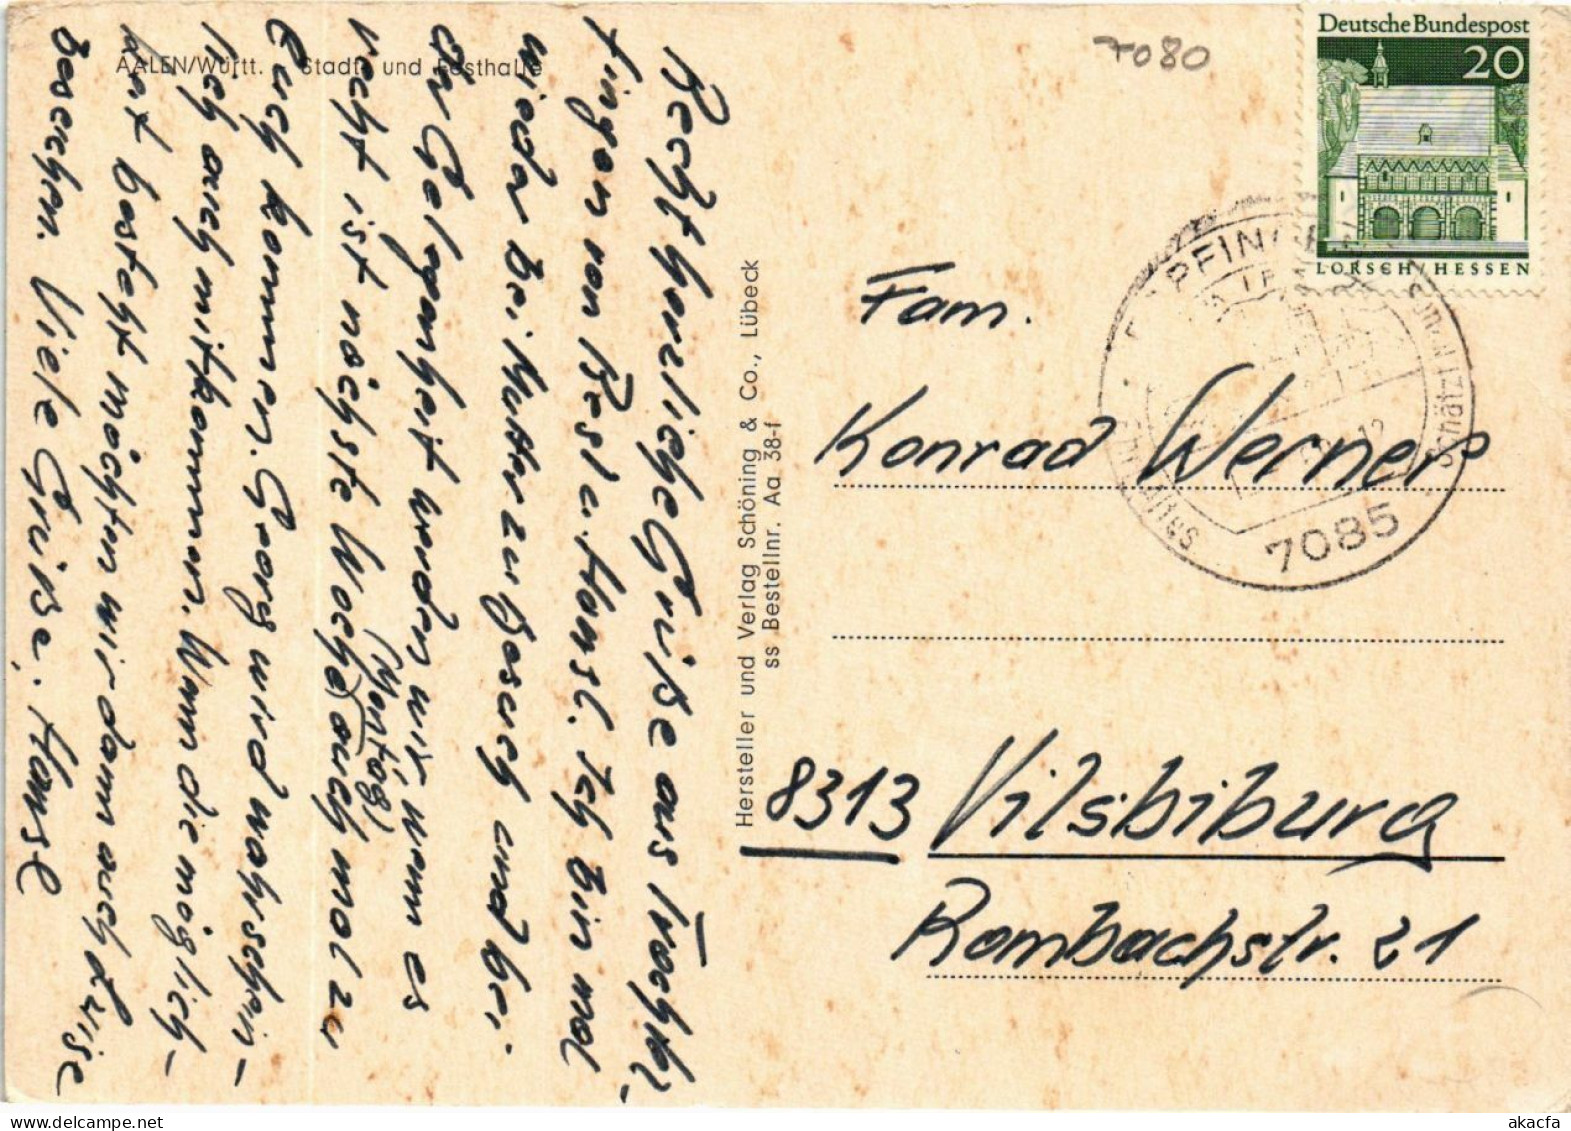 AALEN/Württ. Stadt- und Festhalle
Recht herzliche Grüße aus Trochtel-
fingen von Resl u. Hansl. Ich bin mal
wieder bei Mutter zu Besuch und bei
der Gelegenheit werden wir, wenn es
recht ist nächste Woche auch mal zu
(Montag)
Euch kommen. Georg wird wahrschein-
lich auch mitkommen. Wenn die möglich-
keit besteht möchten wir dann auch
besuchen. Viele Grüße. Hansl
Hersteller und Verlag Schöning & Co., Lübeck
ss Bestellnr. Aa 38-f
7080
Deutsche Bundespost
20
LORSCH/HESSEN
7085
Fam.
Konrad Werner
8313 Vilsbiburg
Rombachstr. 21
akacfa